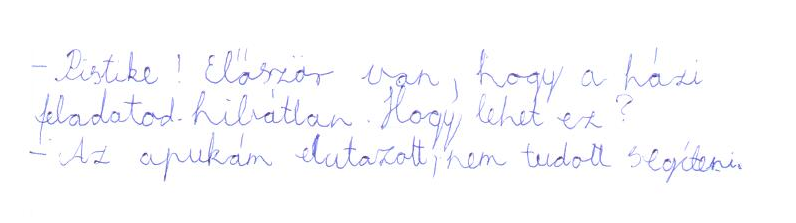 - Pistike! Először van, hogy a házi
feladatod hibátlan. Hogy lehet ez?
- Az apukám elutazott, nem tudott segíteni.